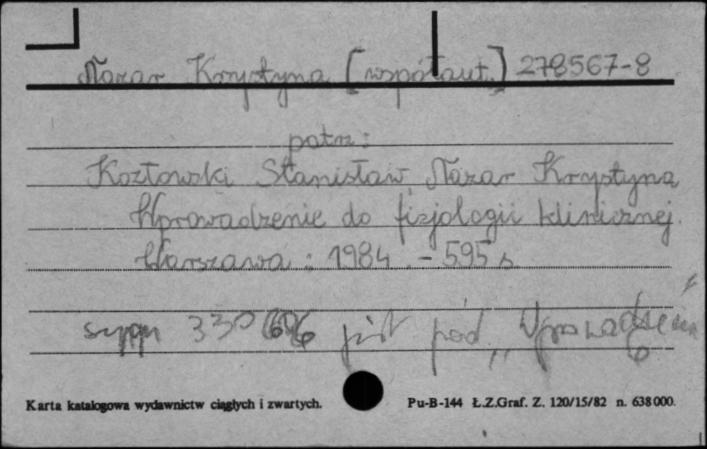 Nazar Krystyna [współaut.] 278567-8
patrz:
Kozłowski Stanisław, Nazar Krystyna
Wprowadzenie do fizjologii klinicznej.
Warszawa : 1984 . - 595 s
330 jest pod
Karta katalogowa wydawnictw ciągłych i zwartych. Pu-B-144 Ł.Z.Graf. Z. 120/15/82 n. 638000.